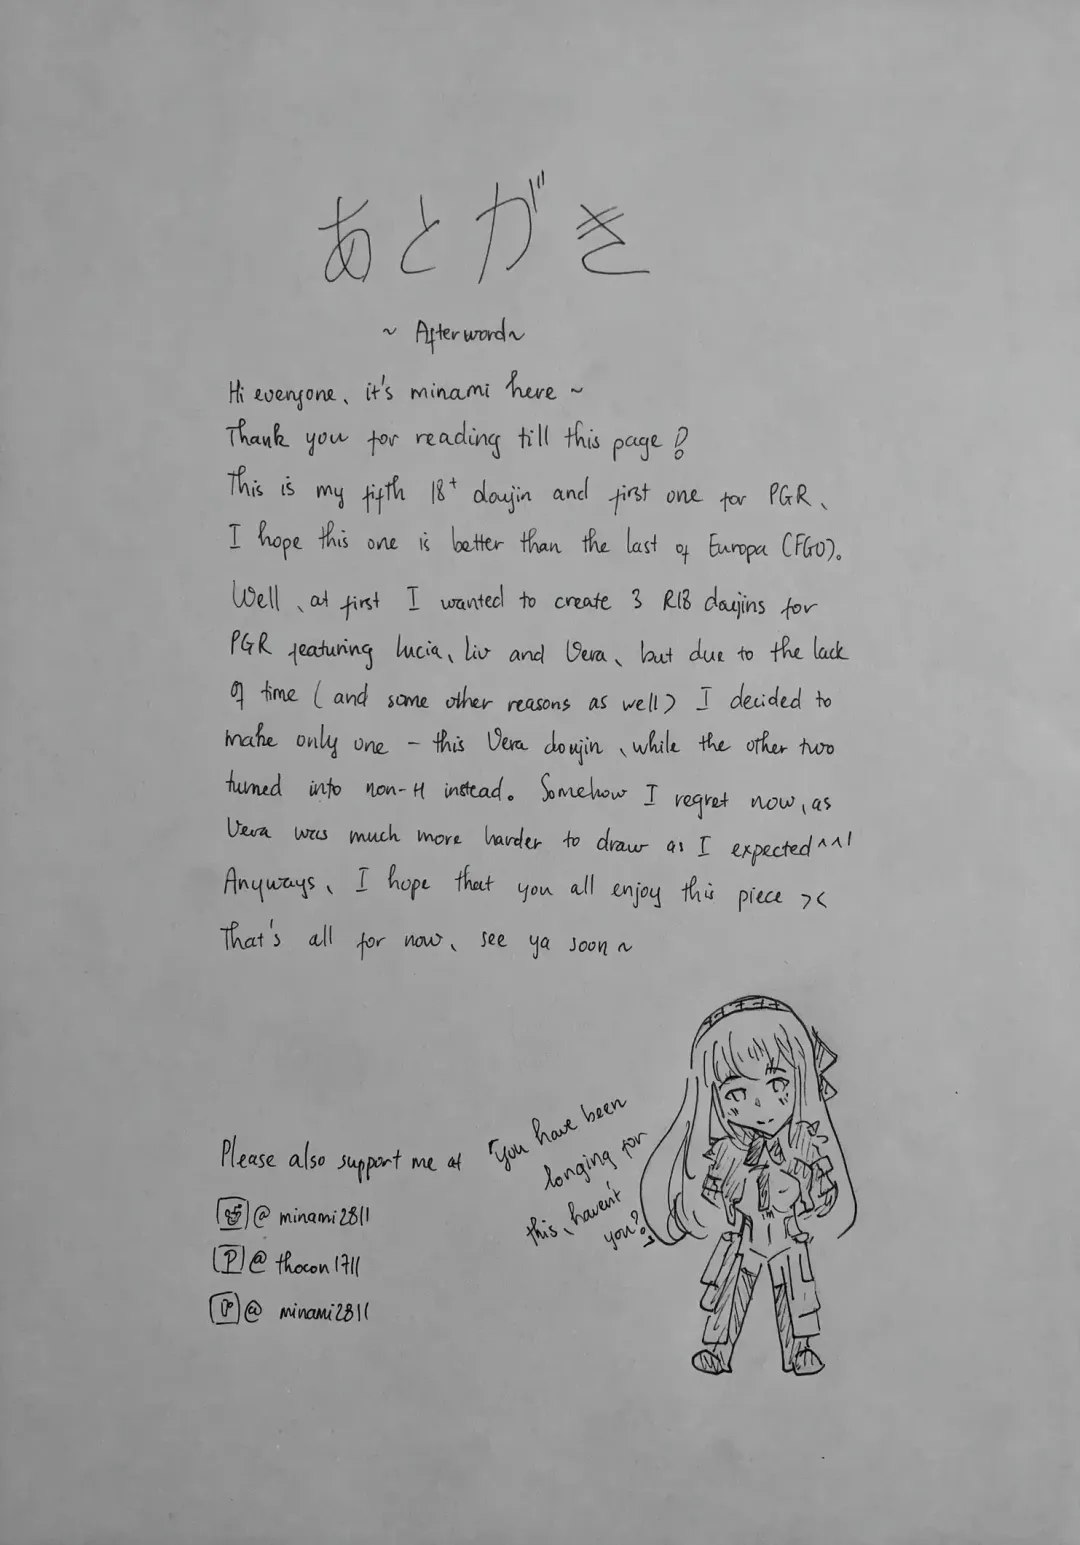 あとがき
~ Afterword ~
Hi everyone、it's minami here ~
Thank you for reading till this page !
This is my fifth 18+ doujin and first one for PGR、
I hope this one is better than the last of Europa (FGO)。
Well、at first I wanted to create 3 R18 doujins for
PGR featuring Lucia、Liv and Vera、but due to the lack
of time (and some other reasons as well) I decided to
make only one - this Vera doujin、while the other two
turned into non-H instead。Somehow I regret now、as
Vera was much more harder to draw as I expected ^^!
Anyways、I hope that you all enjoy this piece ><
That's all for now、see ya soon ~
Please also support me at
@ minami2811
P @ thocon1711
P @ minami2811
「You have been
longing for
this、haven't
you?」